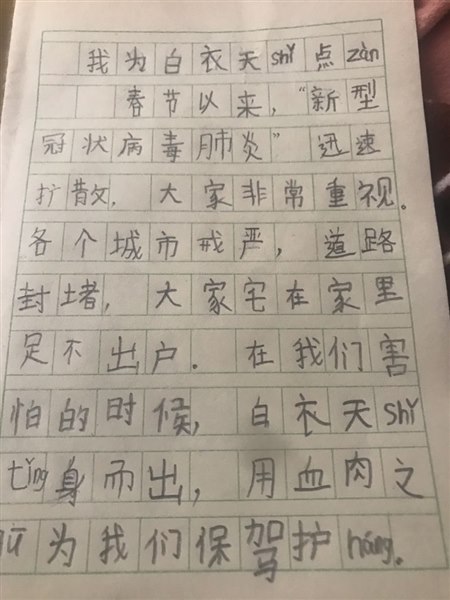 我为白衣天shǐ点zàn
春节以来，“新型
冠状病毒肺炎”迅速
扩散，大家非常重视。
各个城市戒严，道路
封堵，大家宅在家里
足不出户．在我们害
怕的时候，白衣天shǐ
tǐng身而出，用血肉之
为我们保驾护háng.